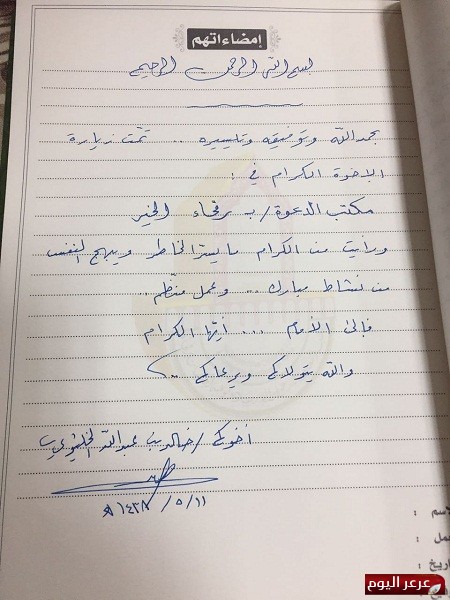 إمضاءاتهم
بسم الله الرحمن الرحيم
بحمد الله وتوفيقه وتيسيره ... تمت زيارة
الإخوة الكرام في :
مكتب الدعوة / بـ رفحاء الخير
ورأيت من الكرام ما يسر الخاطر ويبهج النفس
من نشاط مبارك .. وعمل منظم .
فإلى الأمام ... أيها الكرام
والله يتولاكم ويرعاكم ...
أخوكم / خالد بن عبدالله
١٤٣٨/٥/١١ هـ
الاسم :
العمل :
التاريخ :
عرعر اليوم